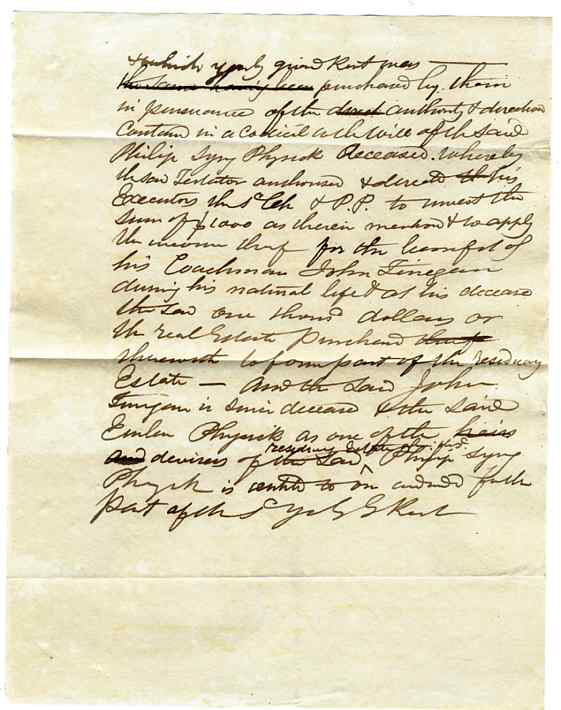 & which yearly ground Rent was
the same having been purchased by them
in pursuance of the direct authority & direction
Contained in a Codicil to the Will of the said
Philip Syng Physick Deceased. whereby
the said Testator authorised & directed the his
Executors the sd C & P.P. to invest the
Sum of $1000 as therein mentiond & to apply
the income thereof for the benefit of
his Coachman John Finegan
during his natural life & at his decease
the said one thousd dollars or
the Real Estate purchased
therewith to form part of the residuary
Estate — And the said John
Finegan is since deceased & the said
Emlen Physick as one of the heirs
and devisees of the residuary Estate of the said Philip Syng
Physick is entitled to one undivd fifth
part of the sd Yrly G Rent